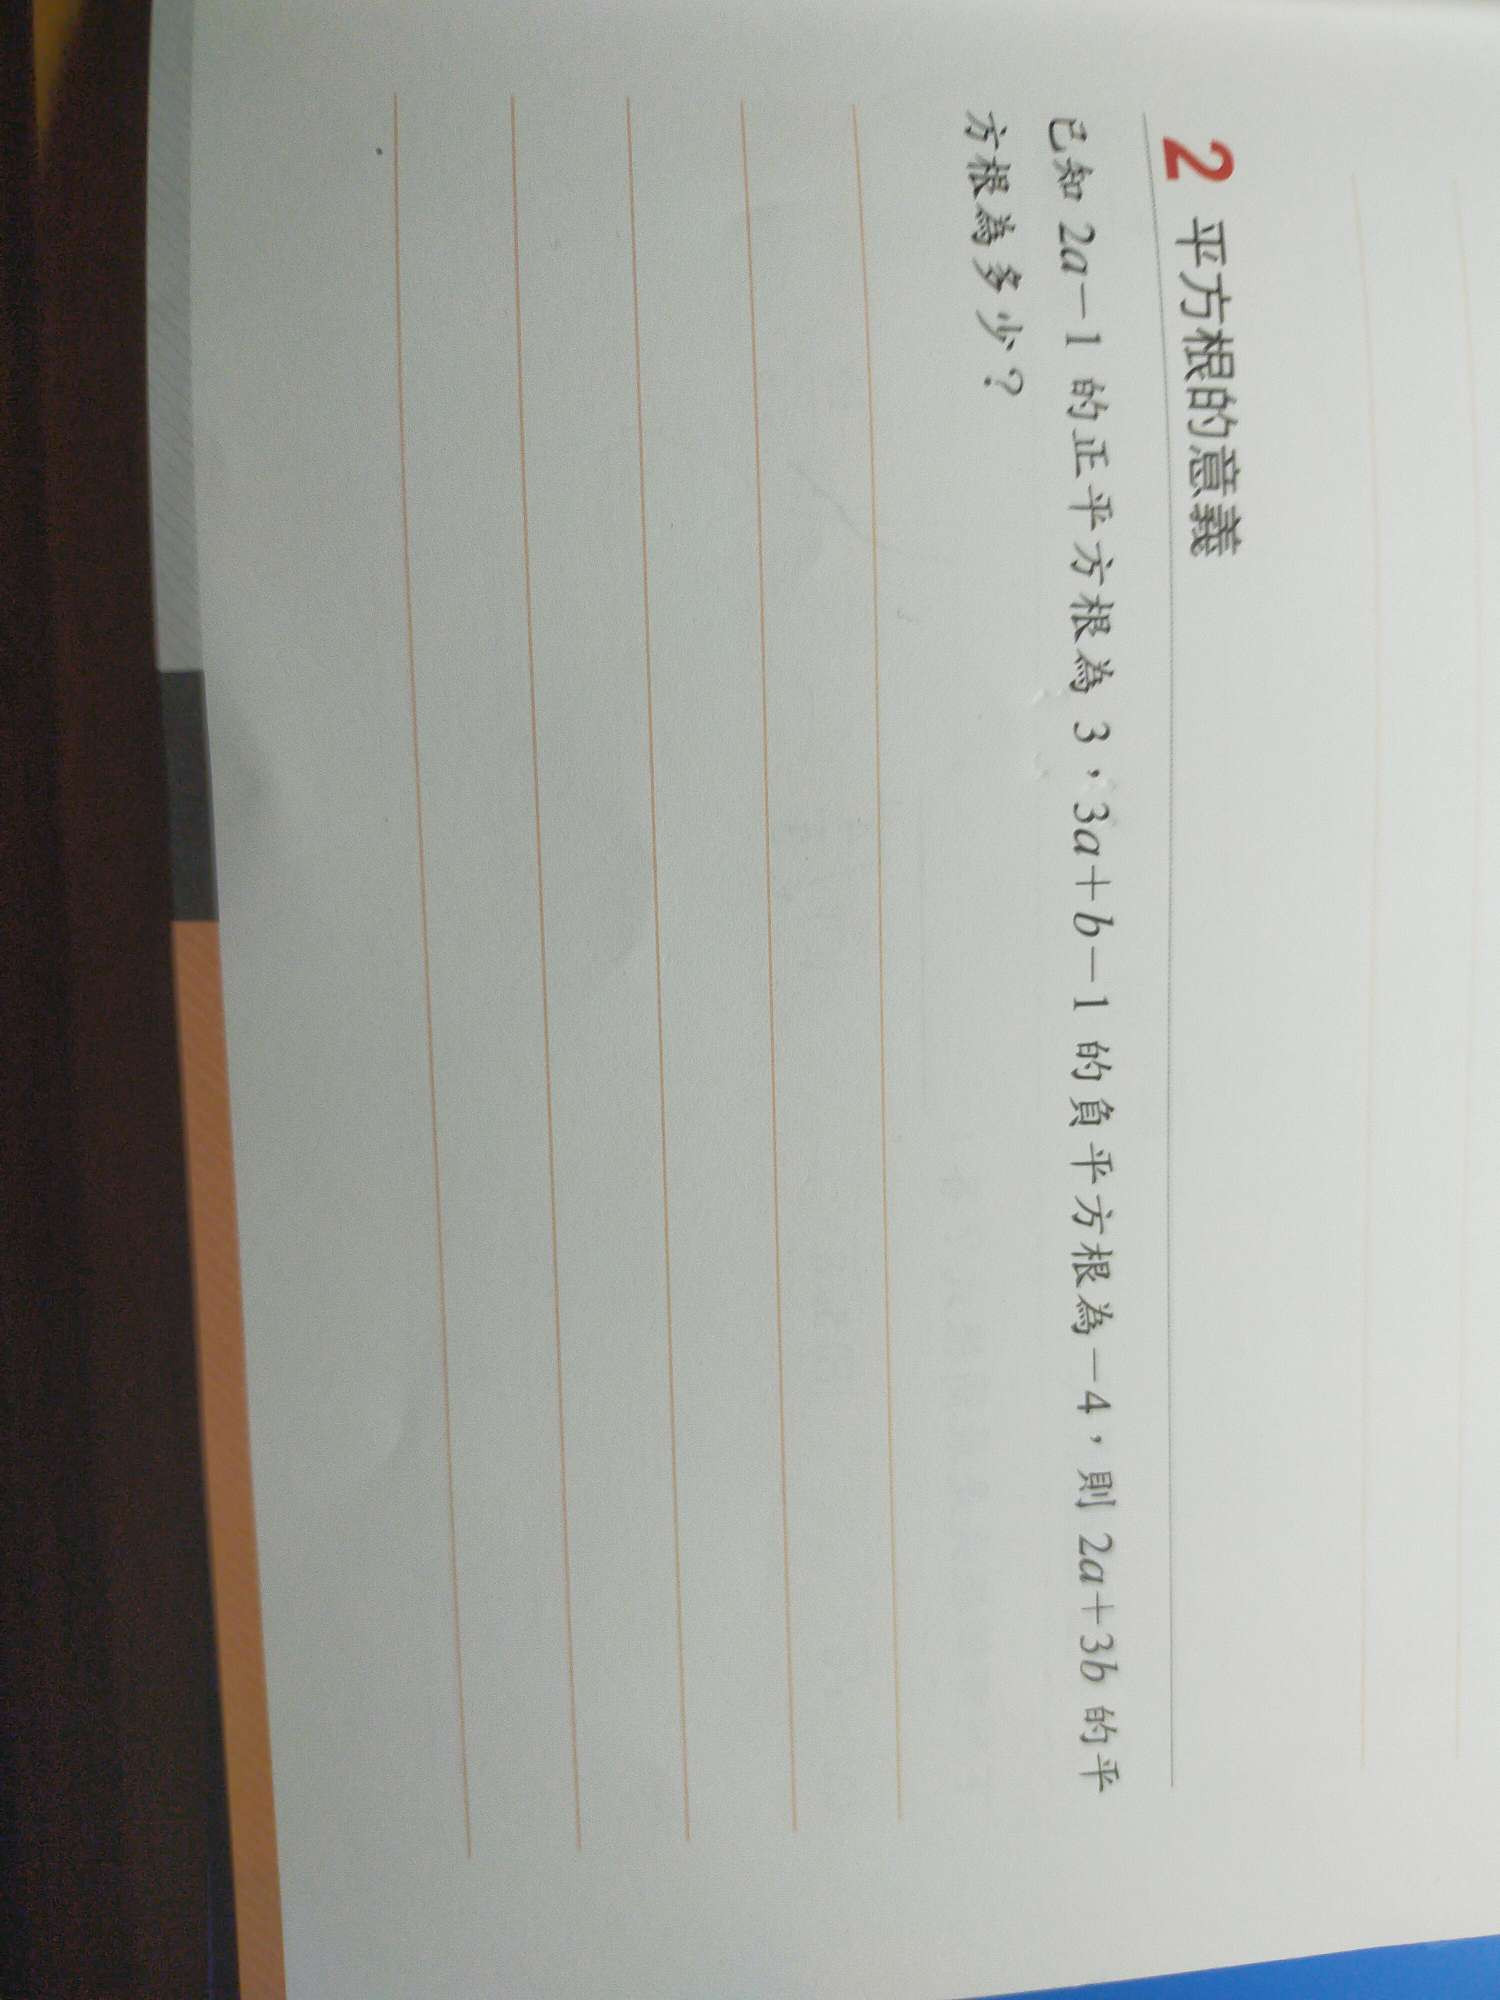 2 平方根的意義
已知 2a－1 的正平方根為 3，3a＋b－1 的負平方根為－4，則 2a＋3b 的平
方根為多少？